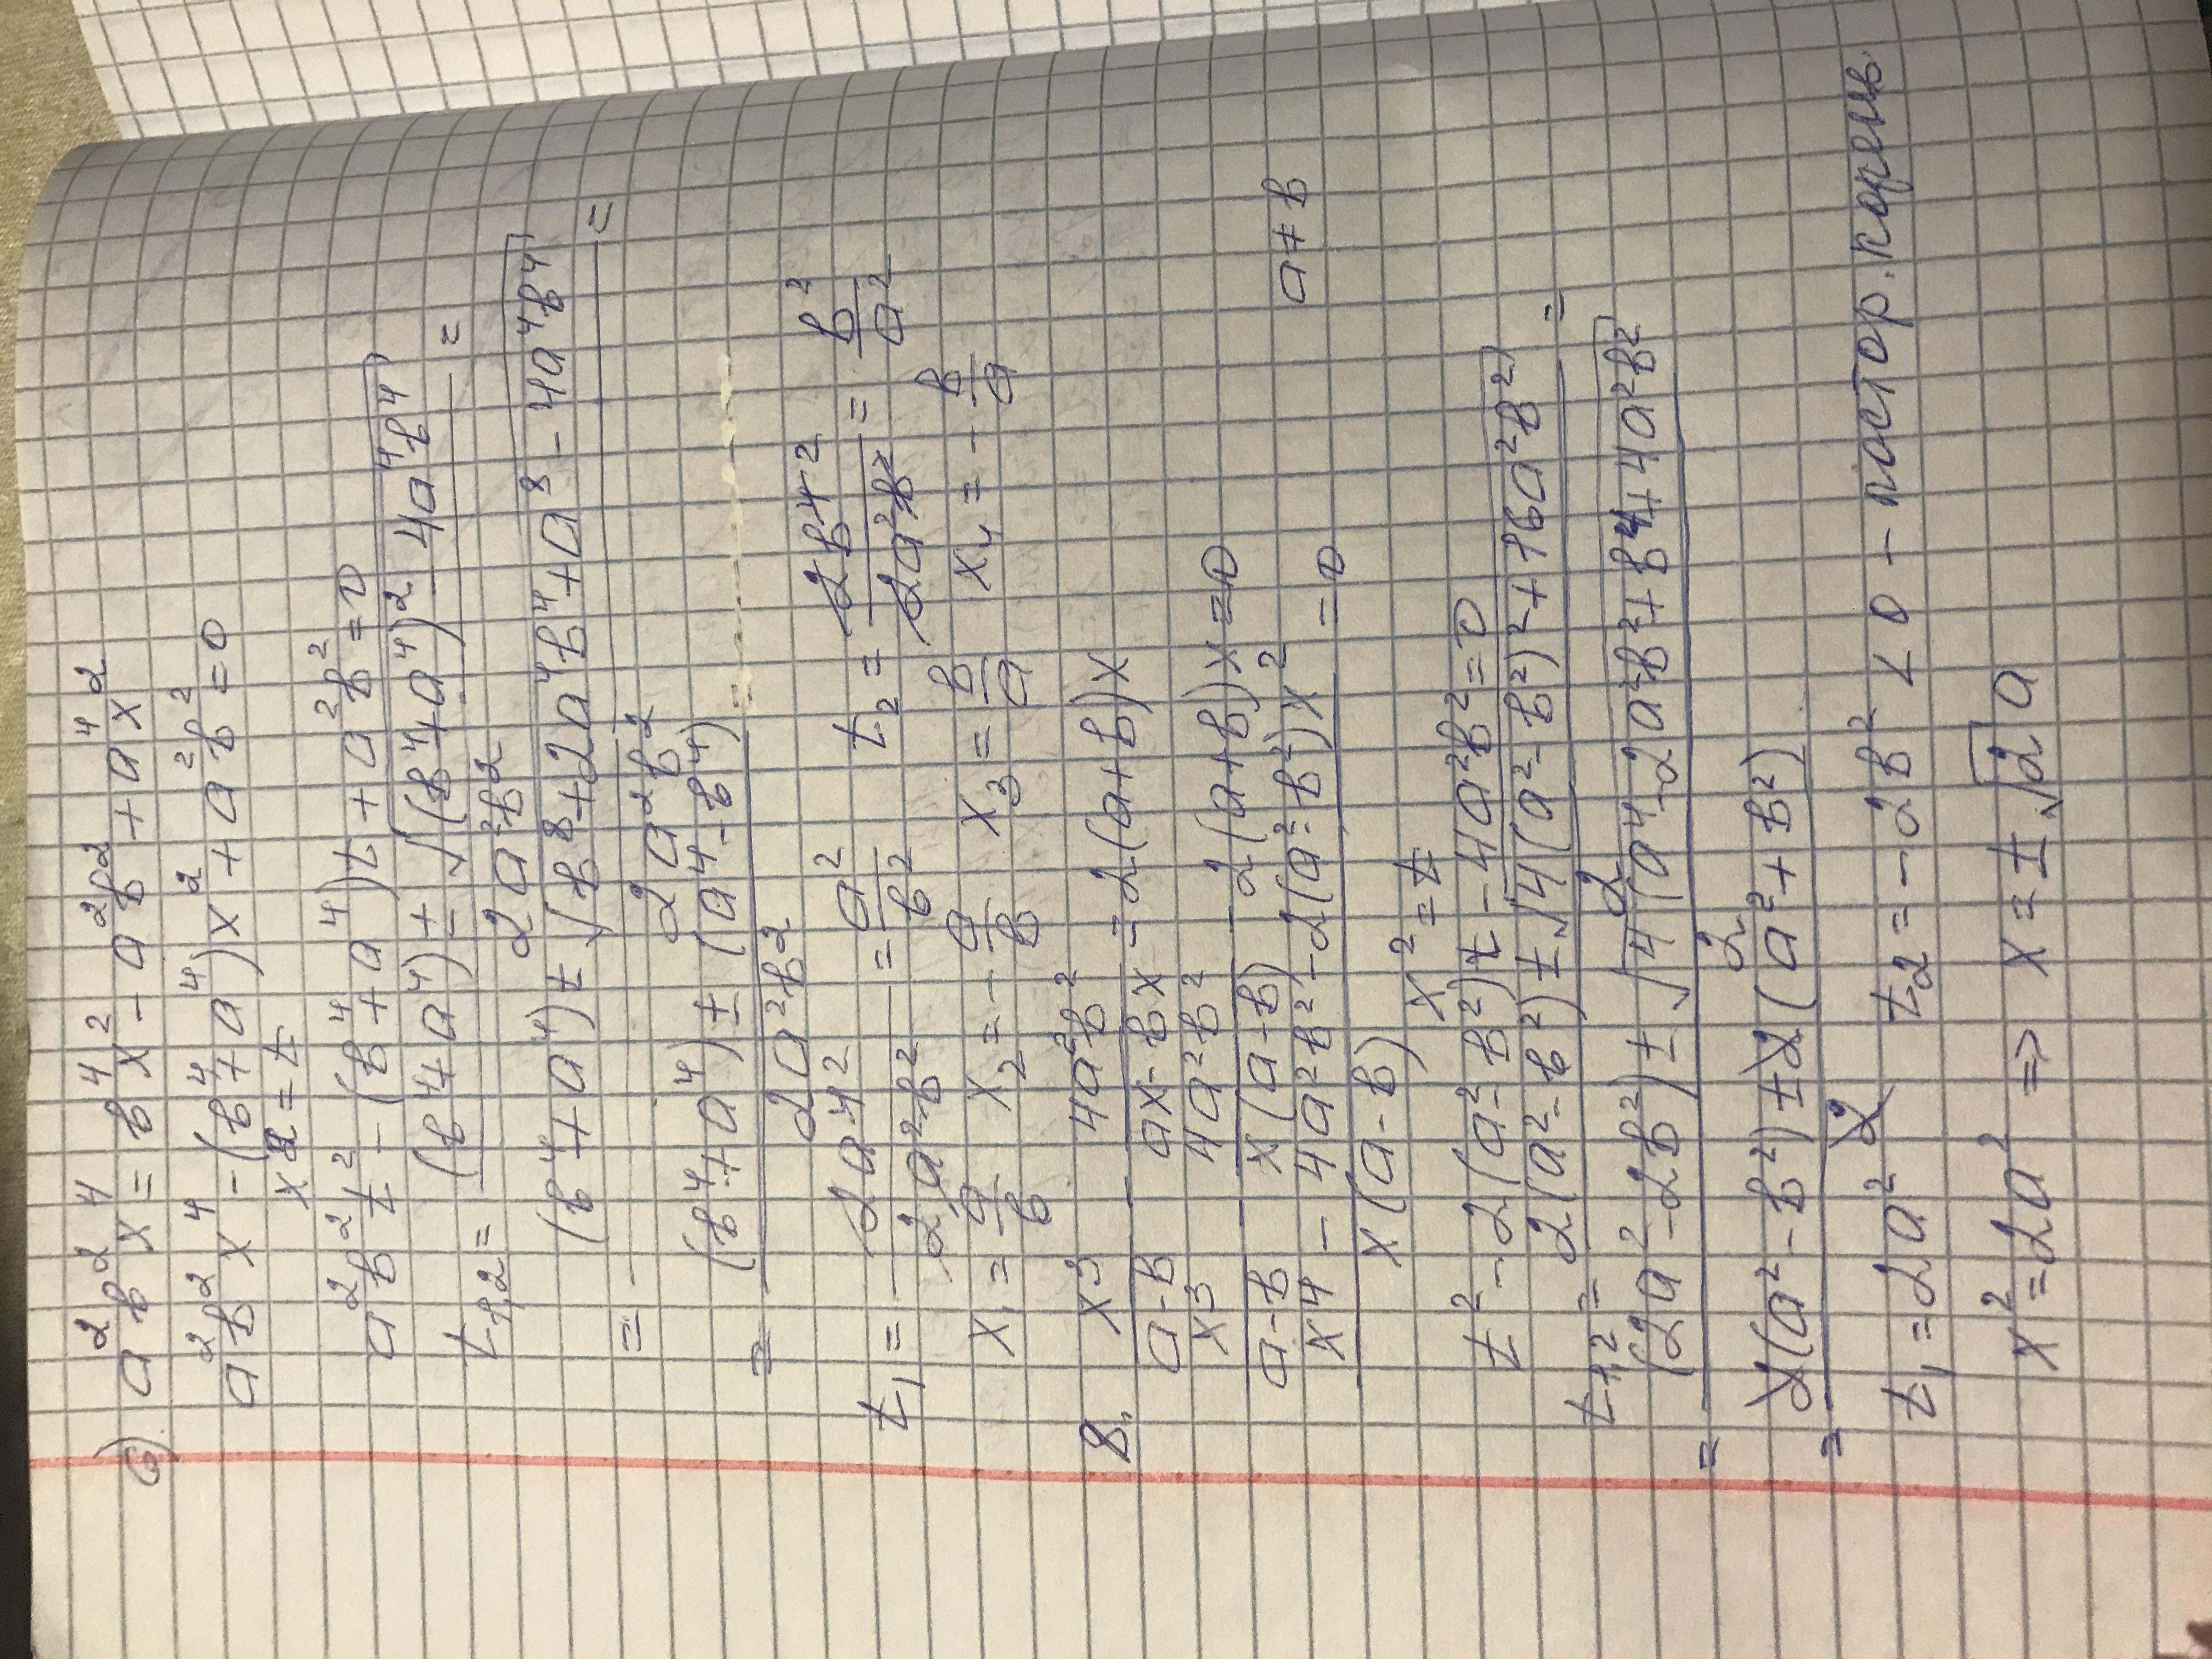 6) a²b²x⁴ = b⁴x² - a²b² + a⁴x²
a²b²x⁴ - (b⁴+a⁴)x² + a²b² = 0
x² = t
a²b²t² - (b⁴+a⁴)t + a²b² = 0
t₁,₂ = ((b⁴+a⁴) ± √((b⁴+a⁴)² - 4a⁴b⁴)) / (2a²b²) =
= ((b⁴+a⁴) ± √(b⁸+2a⁴b⁴+a⁸-4a⁴b⁴)) / (2a²b²) =
= ((b⁴+a⁴) ± (a⁴-b⁴)) / (2a²b²)
t₁ = 2a⁴ ² / 2a²b² = a²/b² t₂ = 2b⁴ ² / 2a²b² = b²/a²
x₁ = a/b x₂ = - a/b x₃ = b/a x₄ = - b/a
8. x³/(a-b) - 4a²b²/(ax-bx) = 2(a+b)x
x³/(a-b) - 4a²b²/(x(a-b)) - 2(a+b)x = 0
(x⁴ - 4a²b² - 2(a²-b²)x²) / (x(a-b)) = 0 a ≠ b
x² = t
t² - 2(a²-b²)t - 4a²b² = 0
t₁,₂ = (2(a²-b²) ± √(4(a²-b²)²+16a²b²)) / 2 =
= ((2a²-2b²) ± √(4(a⁴-2a²b²+b⁴+4a²b²)) / 2
= (2(a²-b²) ± 2(a²+b²)) / 2
t₁ = 2a² t₂ = -2b² < 0 - постор. корень.
x² = 2a² => x = ± √2 a